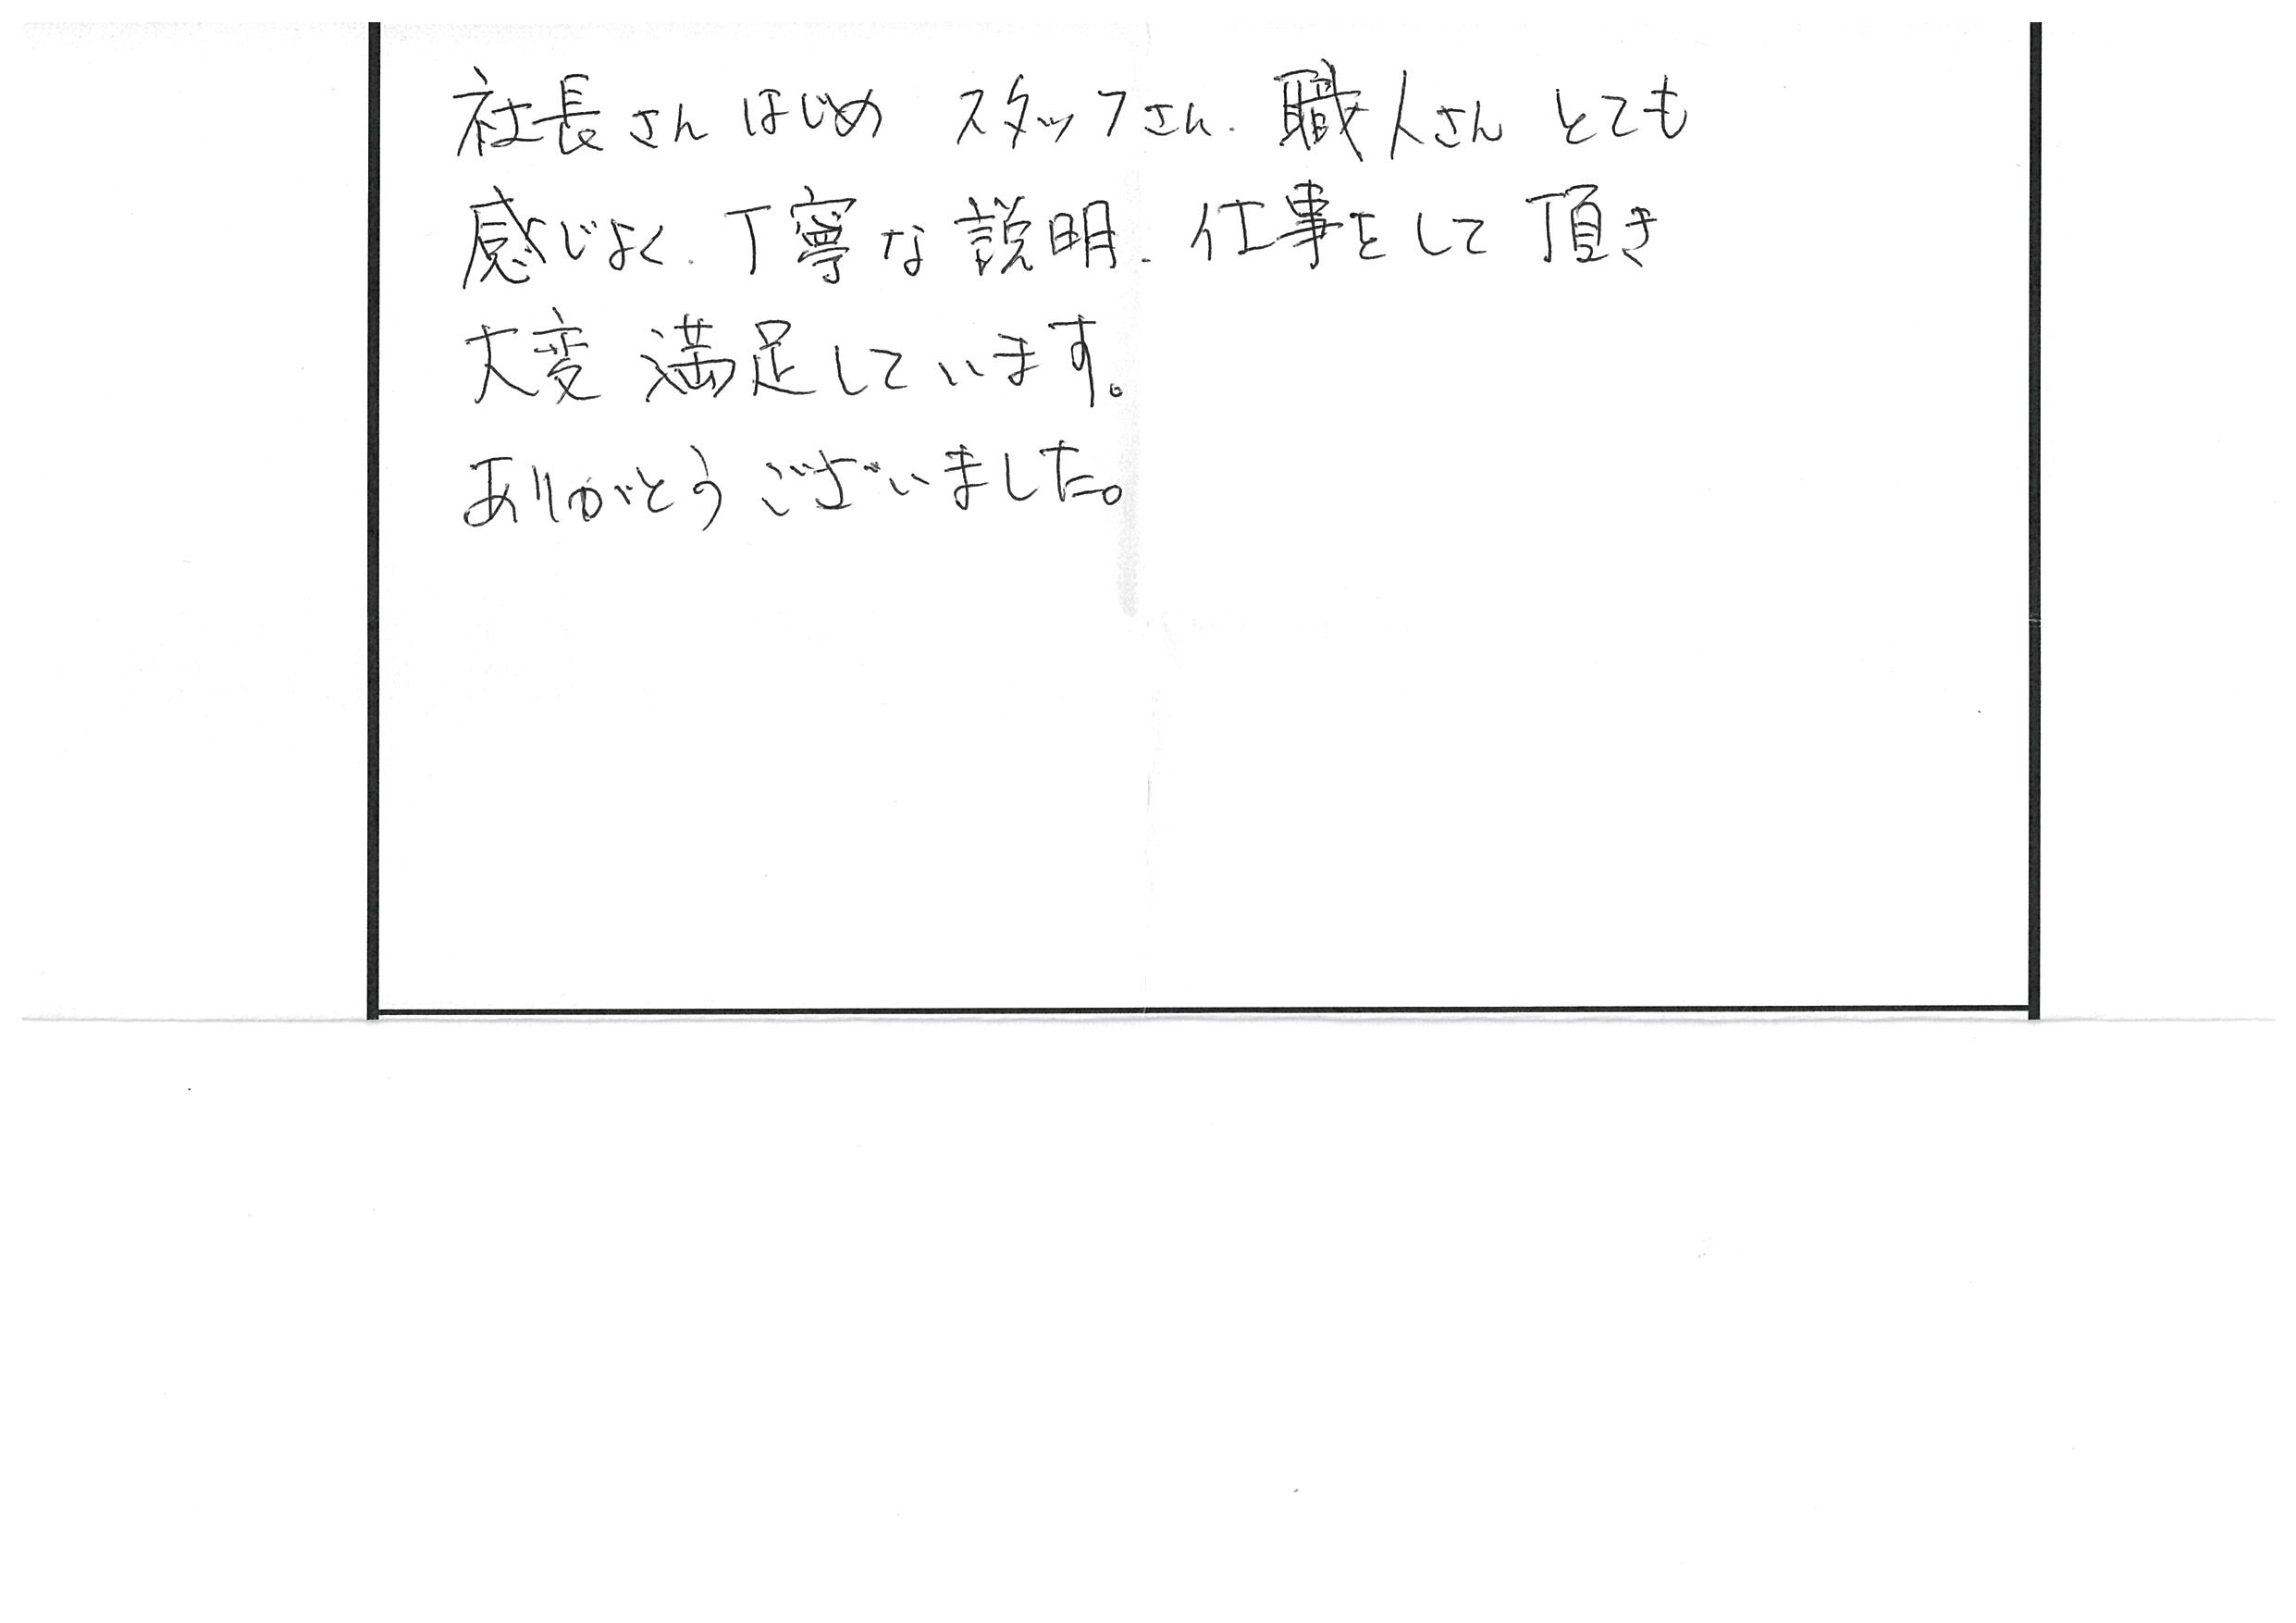 社長さんはじめ スタッフさん、職人さん とても
感じよく、丁寧な説明、仕事をして頂き
大変満足しています。
ありがとうございました。